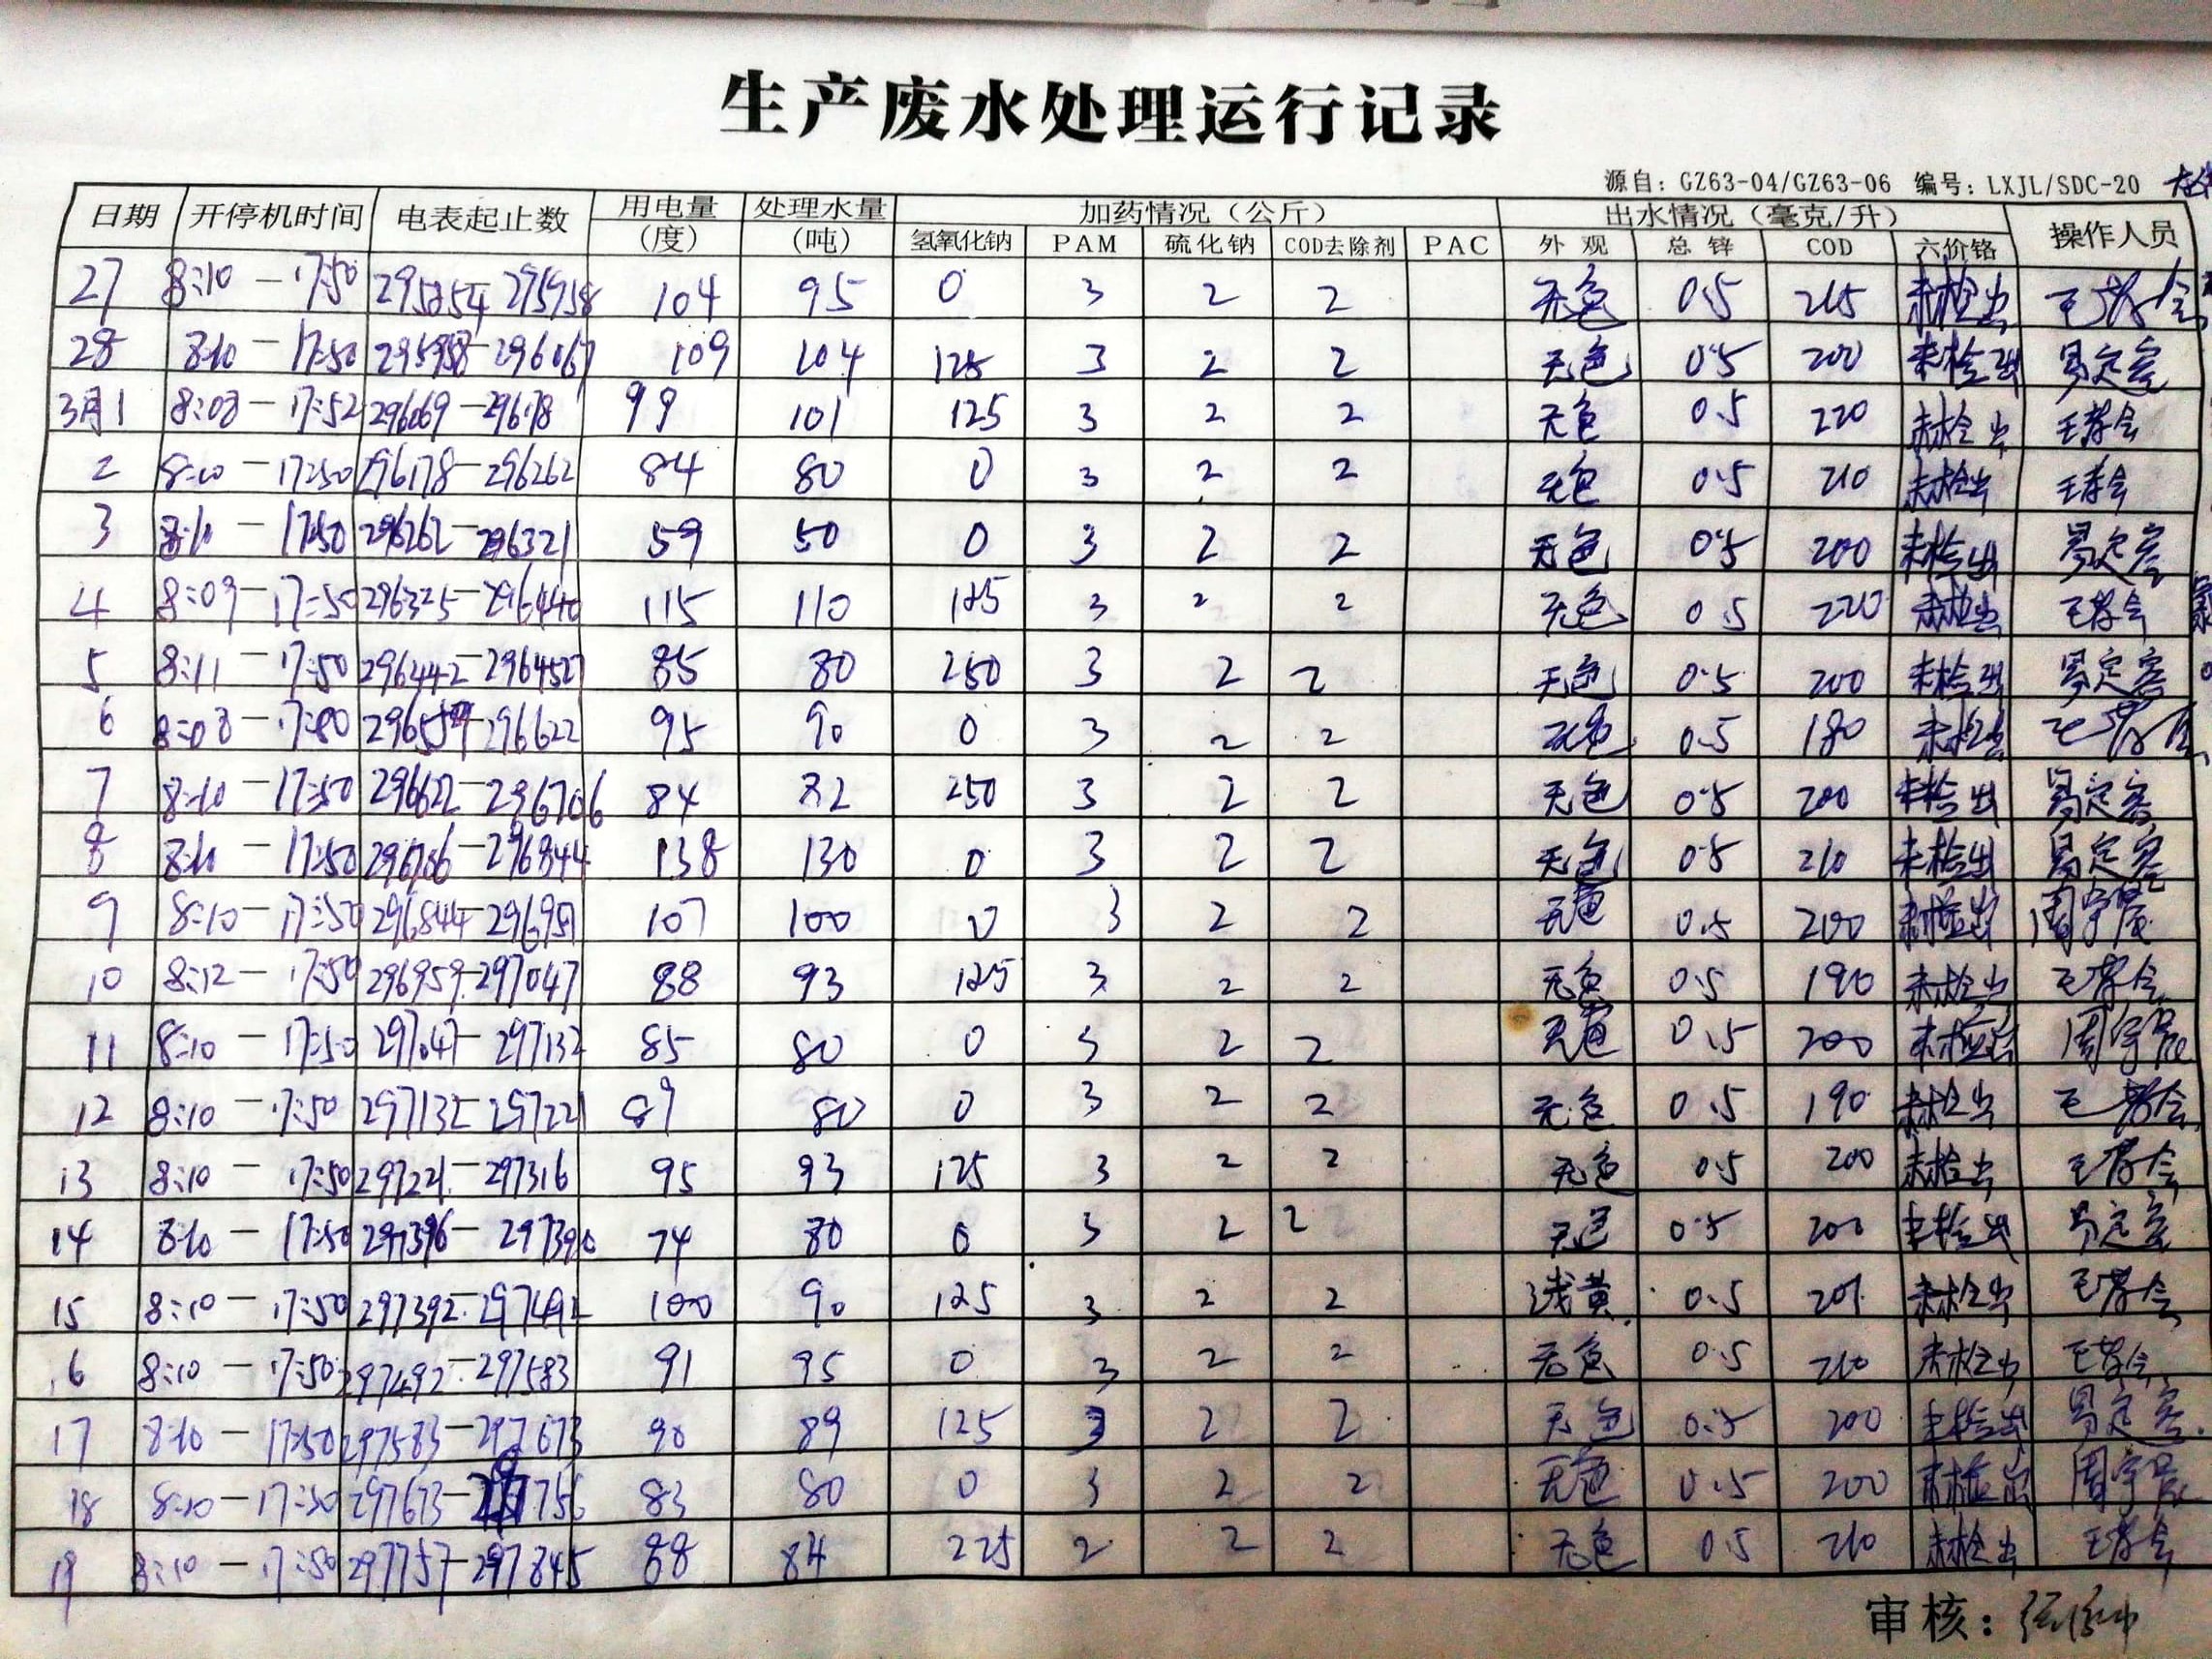 生产废水处理运行记录
源自：GZ63-04/GZ63-06 编号：LXJL/SDC-20
日期 开停机时间 电表起止数 用电量（度） 处理水量（吨） 加药情况（公斤） 出水情况（毫克/升） 操作人员
氢氧化钠 PAM 硫化钠 COD去除剂 PAC 外观 总锌 COD 六价铬
27 8:10 — 17:50 295854 - 295958 104 95 0 3 2 2 无色 0.5 215 未检出
28 8:10 — 17:50 295958 - 296067 109 104 125 3 2 2 无色 0.5 200 未检出 易定容
3月1 8:08 — 17:52 296069 - 296178 99 101 125 3 2 2 无色 0.5 220 未检出 王孝会
2 8:10 — 17:50 296178 - 296262 84 80 0 3 2 2 无色 0.5 210 未检出 王孝会
3 8:10 — 17:50 296262 - 296321 59 50 0 3 2 2 无色 0.5 200 未检出 易定容
4 8:09 — 17:50 296325 - 296440 115 110 125 3 2 2 无色 0.5 220 未检出 王孝会
5 8:11 — 17:50 296442 - 2964527 85 80 250 3 2 2 无色 0.5 200 未检出 易定容
6 8:08 — 17:50 - 296622 95 90 0 3 2 2 无色 0.5 180 未检出
7 8:10 — 17:50 296622 - 296706 84 82 250 3 2 2 无色 0.5 200 未检出 易定容
8 8:10 — 17:50 296706 - 296844 138 130 0 3 2 2 无色 0.5 210 未检出 易定容
9 8:10 — 17:50 296844 - 296951 107 100 0 3 2 2 无色 0.5 200 未检出 周宇辰
10 8:12 — 17:50 296959 - 297047 88 93 125 3 2 2 无色 0.5 190 未检出 王孝会
11 8:10 — 17:50 297047 - 297132 85 80 0 3 2 2 无色 0.5 200 未检出 周宇辰
12 8:10 — 17:50 297132 - 297221 89 80 0 3 2 2 无色 0.5 190 未检出 王孝会
13 8:10 — 17:50 297221 - 297316 95 93 125 3 2 2 无色 0.5 200 未检出 王孝会
14 8:10 — 17:50 - 297390 74 80 0 3 2 2 无色 0.5 200 未检出 易定容
15 8:10 — 17:50 297392 - 297492 100 90 125 3 2 2 浅黄 0.5 201 未检出 王孝会
16 8:10 — 17:50 297492 - 297583 91 95 0 3 2 2 无色 0.5 210 未检出 王孝会
17 8:10 — 17:50 297583 - 297673 90 89 125 3 2 2 无色 0.5 200 未检出 易定容
18 8:10 — 17:50 297673 - 297756 83 80 0 3 2 2 无色 0.5 200 未检出 周宇辰
19 8:10 — 17:50 297757 - 297845 88 84 225 2 2 2 无色 0.5 210 未检出 王孝会
审核：